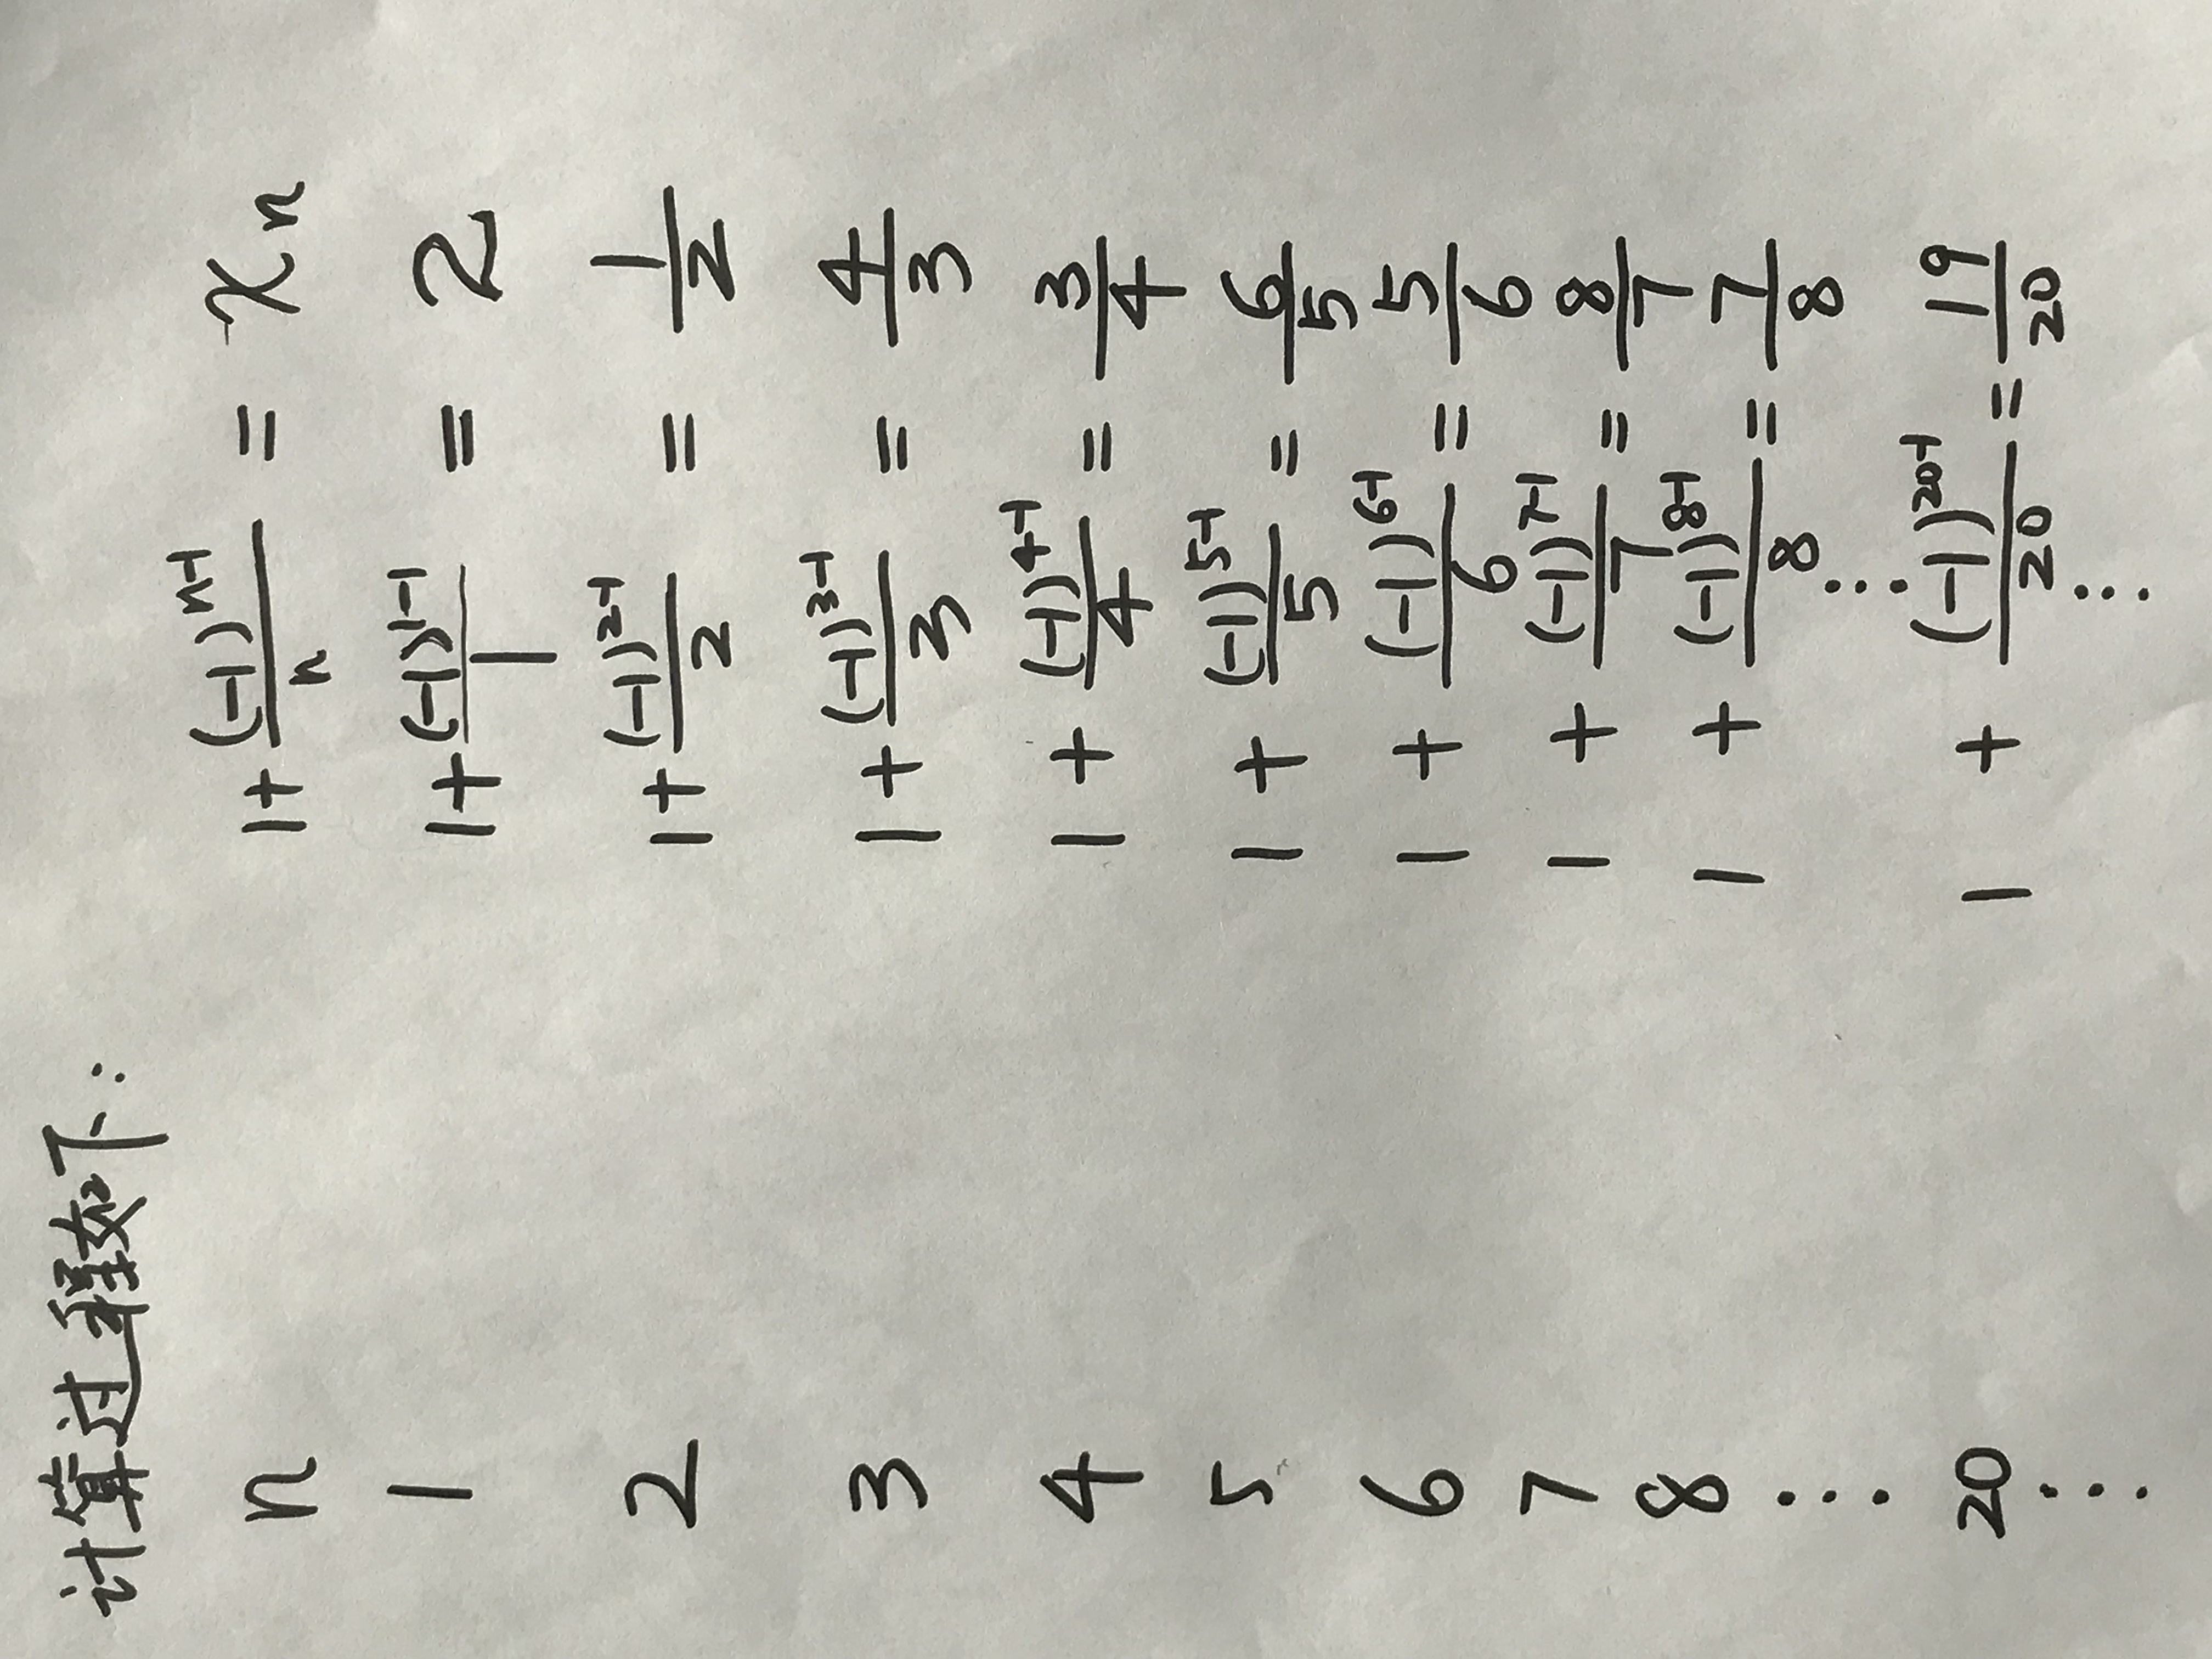 计算过程如下:
n 1+\frac{(-1)^{n-1}}{n} = x_n
1 1+\frac{(-1)^{1-1}}{1} = 2
2 1+\frac{(-1)^{2-1}}{2} = \frac{1}{2}
3 1+\frac{(-1)^{3-1}}{3} = \frac{4}{3}
4 1+\frac{(-1)^{4-1}}{4} = \frac{3}{4}
5 1+\frac{(-1)^{5-1}}{5} = \frac{6}{5}
6 1+\frac{(-1)^{6-1}}{6} = \frac{5}{6}
7 1+\frac{(-1)^{7-1}}{7} = \frac{8}{7}
8 1+\frac{(-1)^{8-1}}{8} = \frac{7}{8}
⋮ ⋮
20 1+\frac{(-1)^{20-1}}{20} = \frac{19}{20}
⋮ ⋮